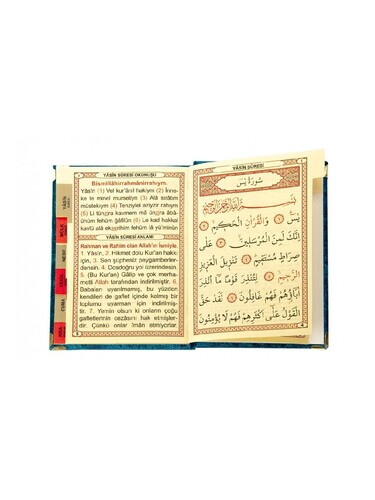 YÂSİN SÛRESİ OKUNUŞU
Bismillâhirrahmânirrahıym.
Yâsîn (1) Vel kur'ânil hakiym (2) İnne-
ke le minel murseliyn (3) Alâ sırâtım
müstekıym (4) Tenziylel azıyzir rahıym
(5) Li tünzira kavmem mâ ünzira âbâ-
ühüm fehüm ğâfilûn (6) Le kad hakkal
kavlü alâ ekserihim fehüm lâ yü'minûn
Rahman ve Rahîm olan Allah'ın ismiyle.
1. Yâsîn, 2. Hikmet dolu Kur'an hakkı
için, 3. Sen şüphesiz peygamberler-
densin. 4. Dosdoğru yol üzerindesin
5. (Bu Kur'an) Çok güçlü, çok mer-
hametli Allah tarafından indirilmiştir. 6.
Babaları uyarılmamış, bu yüzden
kendileri de gaflet içinde kalmış bir
toplumu uyarman için indirilmiştir.
7. Yemin olsun ki onların çoğu
gafletlerinin cezâsını hak etmişler-
dir. Çünkü onlar îmân etmiyorlar.
YÂSİN SÛRESİ ANLAMI
YÂSİN
MÜLK
NEBE'
CUMA
YÂSİN SÛRESİ
سُورَةُ يٰسٓ
بِسْمِ اللّٰهِ الرَّحْمٰنِ الرَّحِيمِ
يٰسٓ ﴿١﴾ وَالْقُرْاٰنِ الْحَكِيمِ ﴿٢﴾
اِنَّكَ لَمِنَ الْمُرْسَلِينَ ﴿٣﴾ عَلٰى
صِرَاطٍ مُسْتَقِيمٍ ﴿٤﴾ تَنْزِيلَ الْعَزِيزِ
الرَّحِيمِ ﴿٥﴾ لِتُنْذِرَ قَوْمًا مَٓا اُنْذِرَ
اٰبَٓاؤُ۬هُمْ فَهُمْ غَافِلُونَ ﴿٦﴾ لَقَدْ حَقَّ
الْقَوْلُ عَلٰٓى اَكْثَرِهِمْ فَهُمْ لَا يُؤْمِنُونَ